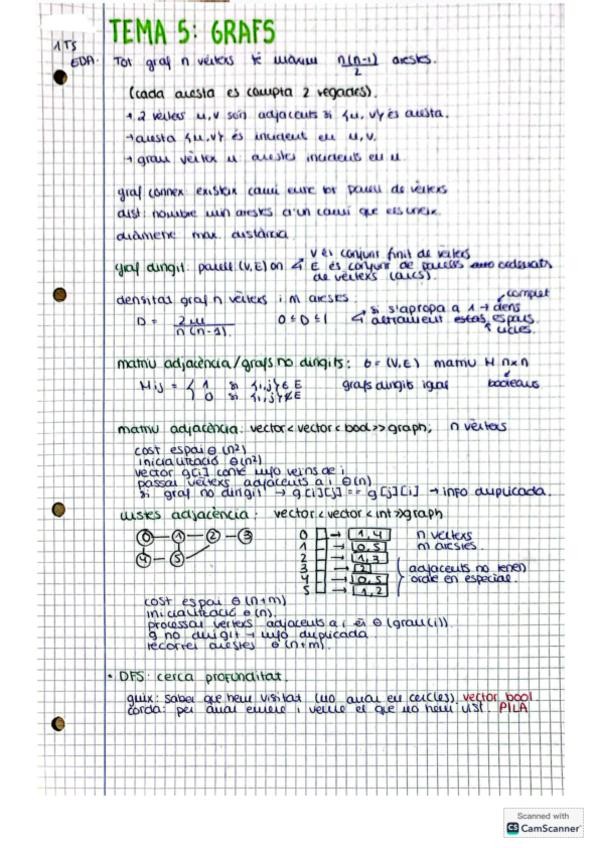 TEMA 5: GRAFS
1 TS
EDA.
Tot graf n vèrtexs té màxim n(n-1)/2 arestes.
(cada aresta es compta 2 vegades).
2 vèrtexs u,v són adjacents si {u, v} és aresta.
→ aresta {u,v} és incident en u, v.
→ grau vèrtex u: arestes incidents en u.
graf connex: existeix camí entre tot parell de vèrtexs
dist: nombre mín arestes d'un camí que els uneix.
diàmetre max. distància.
V és conjunt finit de vèrtexs
graf dirigit: parell (V,E) on E és conjunt de parelles ordenats
de vèrtexs (arcs).
densitat graf n vèrtexs i m arestes.
complet
D = 2m / n(n-1). 0 ≤ D ≤ 1 si s'apropa a 1 → dens
altrament escàs, espars.
matriu adjacència/grafs no dirigits: G = (V,E) matriu M n×n
Mij = { 1 si {i,j} ∈ E grafs dirigits igual booleans
0 si {i,j} ∉ E
matriu adjacència: vector<vector<bool>> graph; n vèrtexs
cost espai Θ(n²)
inicialització Θ(n²)
vector g[i] conté info veïns de i
passar vèrtexs adjacents a i Θ(n)
si graf no dirigit → g[i][j] == g[j][i] → info duplicada.
llistes adjacència: vector<vector<int>> graph
0 1 2 3
4 5
0 → 1,4 n vèrtexs
1 → 0,5 m arestes.
2 → 1,3
3 → 2 adjacents no tenen
4 → 0,5 ordre en especial.
5 → 1,2
cost espai Θ(n+m)
inicialització Θ(n).
processar vèrtexs adjacents a i és Θ(grau(i)).
g no dirigit → info duplicada
recorrei arestes Θ(n+m).
• DFS: cerca profunditat.
guix: saber què hem visitat (no anar en cercles). vector bool
corda: per anar enrere i veure el que no hem vist. PILA
Scanned with
CS CamScanner